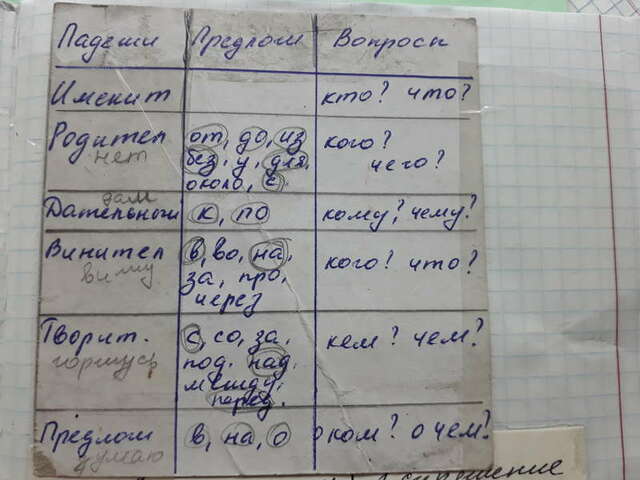 Падежи Предлоги Вопросы
Именит кто? что?
Родител от, до, из кого?
нет без, у, для, чего?
около, с
дам
Дательный к, по кому? чему?
Винител в, во, на, кого? что?
вижу за, про,
через
Творит. с, со, за, кем? чем?
горжусь под, над,
между,
перед.
Предлож в, на, о о ком? о чем?
думаю